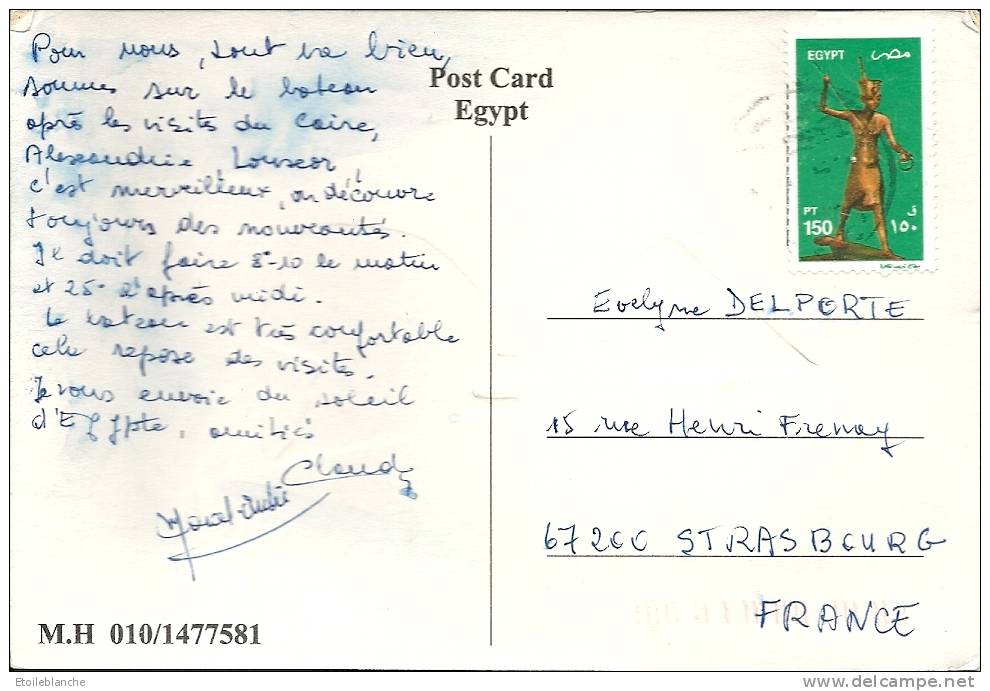 Pour nous, tout va bien,
sommes sur le bateau
après les visites du Caire,
Alexandrie, Louxor,
c'est merveilleux, on découvre
toujours des nouveautés.
Il doit faire 8°-10 le matin
et 25° l'après midi.
Le bateau est très confortable
cela repose des visites.
Je vous envoie du soleil
d'Egypte, amitiés
Claudy
M.H 010/1477581
Post Card
Egypt
EGYPT مصر
PT
150
ق
١٥٠
Evelyne DELPORTE
15 rue Henri Frenay
67200 STRASBOURG
FRANCE
Etoileblanche
delcampe.net